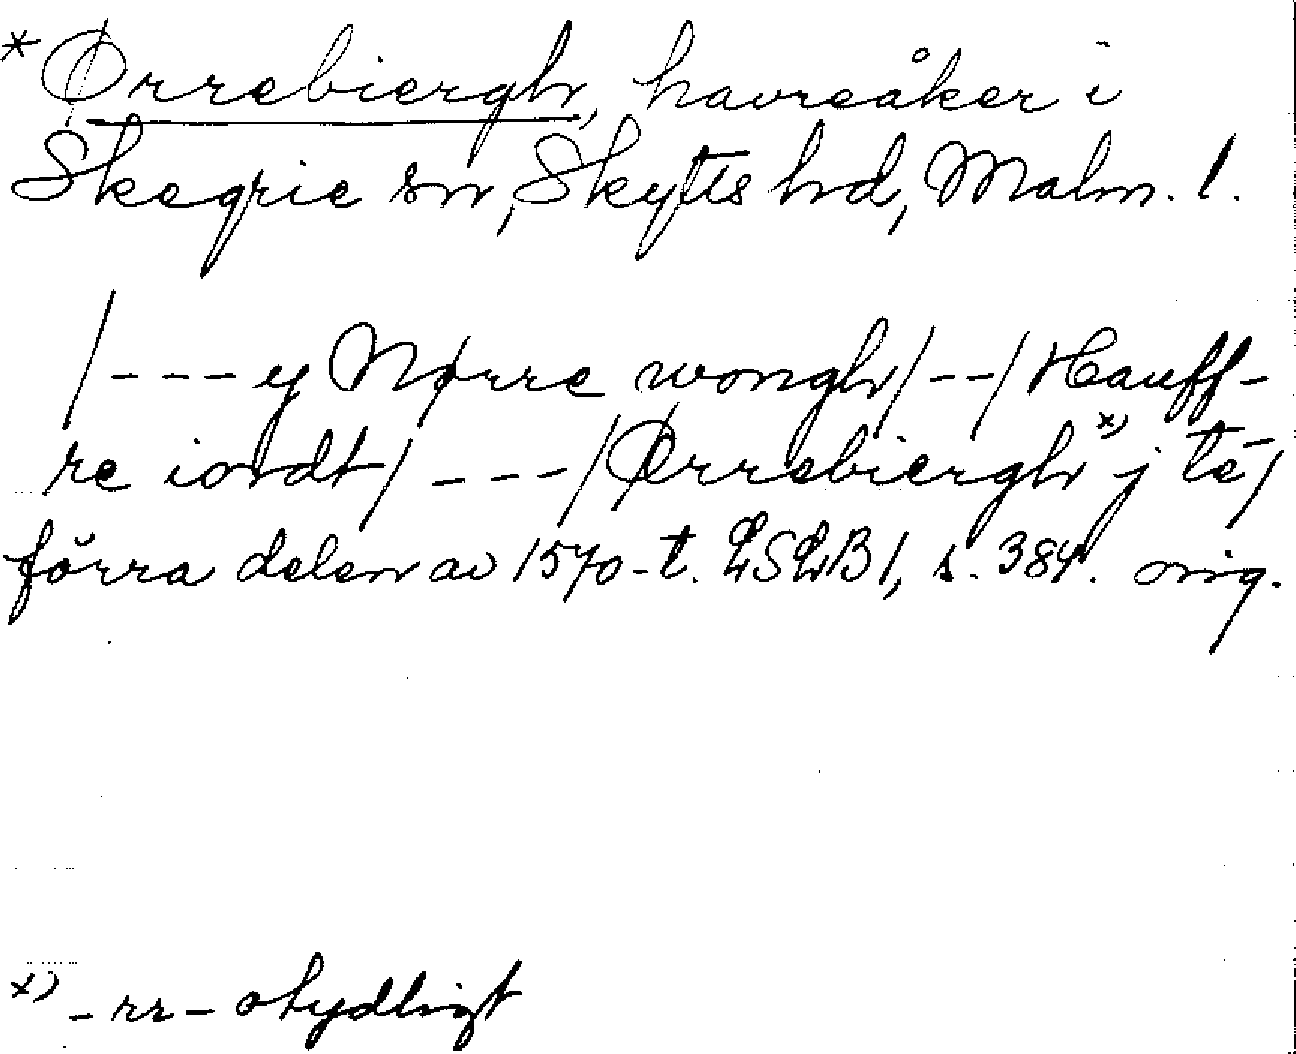 *Ørrebiergh, havreåker i
Skegrie sn, Skytts hd, Malm. l.
/---y Nørre wongh/--/Hauff-
re iordt/---/Ørrebiergh x) j tē/
förra delen av 1570-t. LSLB1, s. 384. orig.
x) -rr- otydligt